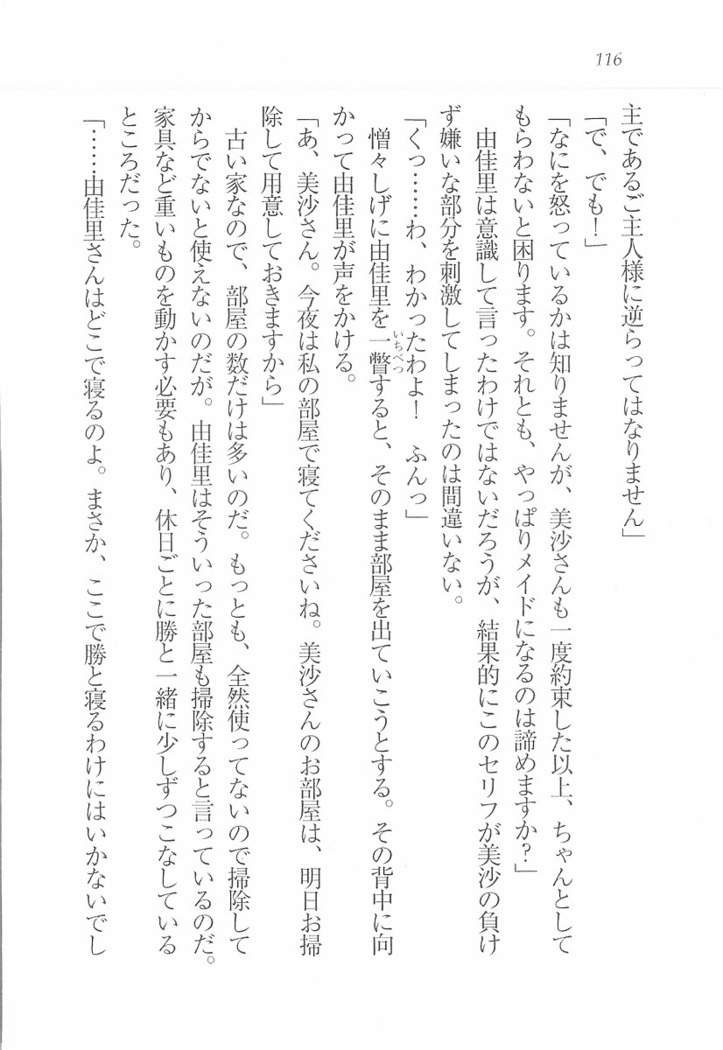 116
主であるご主人様に逆らってはなりません」
「で、でも！」
「なにを怒っているかは知りませんが、美沙さんも一度約束した以上、ちゃんとして
もらわないと困ります。それとも、やっぱりメイドになるのは諦めますか？」
　由佳里は意識して言ったわけではないだろうが、結果的にこのセリフが美沙の負け
ず嫌いな部分を刺激してしまったのは間違いない。
「くっ……わ、わかったわよ！　ふんっ」
　憎々しげに由佳里を一瞥すると、そのまま部屋を出ていこうとする。その背中に向
いちべつ
かって由佳里が声をかける。
「あ、美沙さん。今夜は私の部屋で寝てくださいね。美沙さんのお部屋は、明日お掃
除して用意しておきますから」
　古い家なので、部屋の数だけは多いのだ。もっとも、全然使ってないので掃除して
からでないと使えないのだが。由佳里はそういった部屋も掃除すると言っているのだ。
家具など重いものを動かす必要もあり、休日ごとに勝と一緒に少しずつこなしている
ところだった。
「……由佳里さんはどこで寝るのよ。まさか、ここで勝と寝るわけにはいかないでし